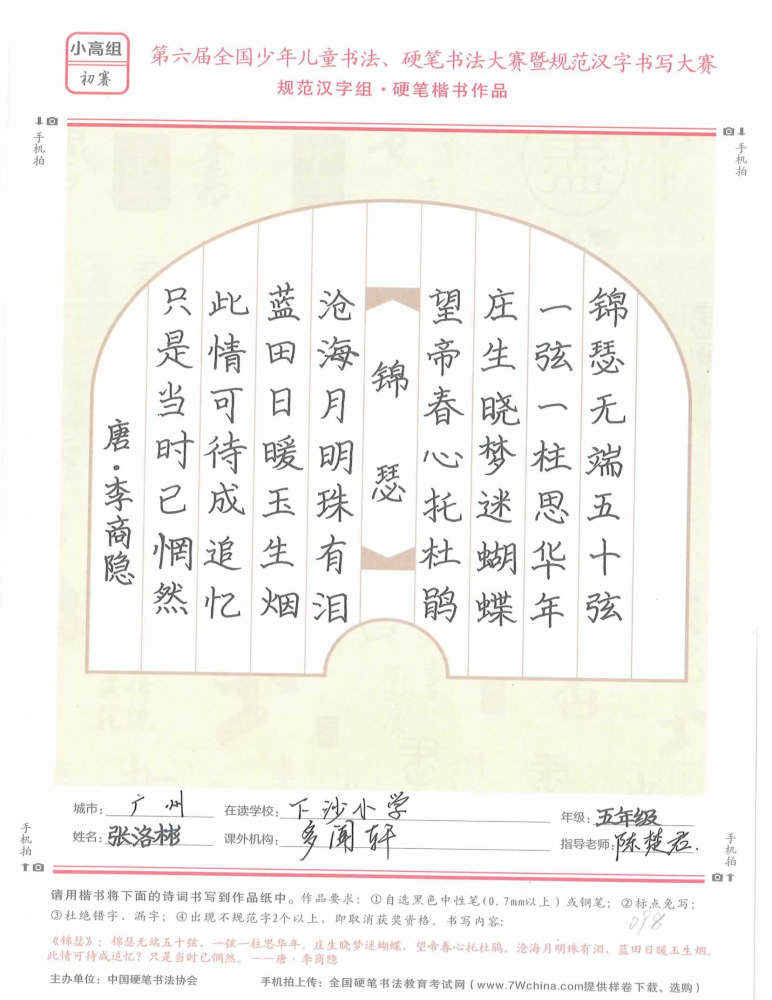 小高组
初赛
第六届全国少年儿童书法、硬笔书法大赛暨规范汉字书写大赛
规范汉字组·硬笔楷书作品
手机拍
手机拍
锦瑟无端五十弦
一弦一柱思华年
庄生晓梦迷蝴蝶
望帝春心托杜鹃
锦瑟
沧海月明珠有泪
蓝田日暖玉生烟
此情可待成追忆
只是当时已惘然
唐·李商隐
城市：广州 在读学校：下沙小学 年级：五年级
姓名：张洛彬 课外机构：多闻轩 指导老师：陈楚君.
手机拍
手机拍
请用楷书将下面的诗词书写到作品纸中。作品要求：①自选黑色中性笔(0.7mm以上)或钢笔；②标点免写；
③杜绝错字、漏字；④出现不规范字2个以上，即取消获奖资格。书写内容：
098
《锦瑟》：锦瑟无端五十弦，一弦一柱思华年。庄生晓梦迷蝴蝶，望帝春心托杜鹃。沧海月明珠有泪，蓝田日暖玉生烟。
此情可待成追忆？只是当时已惘然。——唐·李商隐
主办单位：中国硬笔书法协会 手机拍上传：全国硬笔书法教育考试网(www.7Wchina.com提供样卷下载、选购)